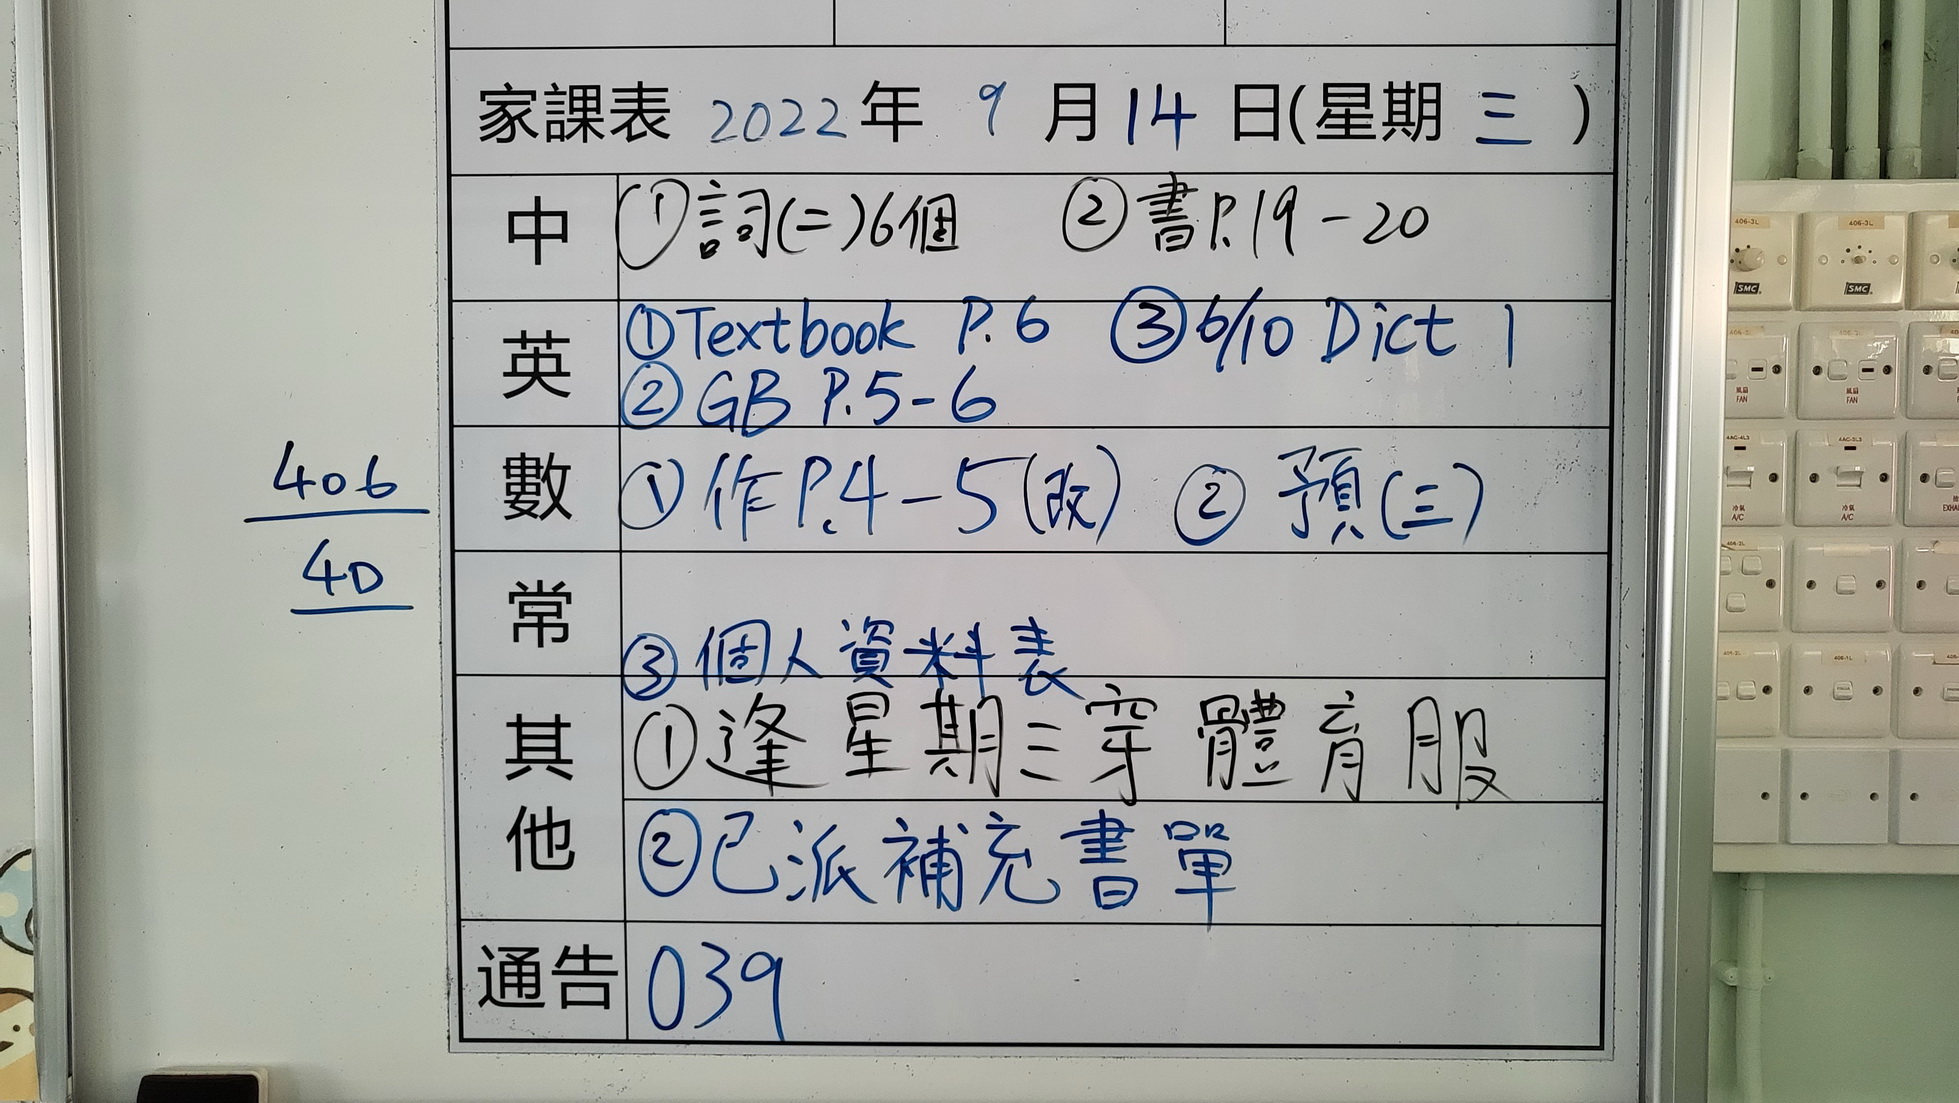 家課表 2022年 9月14日(星期三)
中 ①詞(二)6個 ②書P.19-20
英 ①Textbook P.6 ③6/10 Dict 1
②GB P.5-6
數 ①作P.4-5(改) ②預(三)
406
40
常
③個人資料表
其他 ①逢星期三穿體育服
②已派補充書單
通告 039
406-3L
406-3L
SMC
SMC
風扇
FAN
風扇
FAN
4AC-4L3
4AC-3L3
冷氣
A/C
冷氣
A/C
406-2L
406-1L